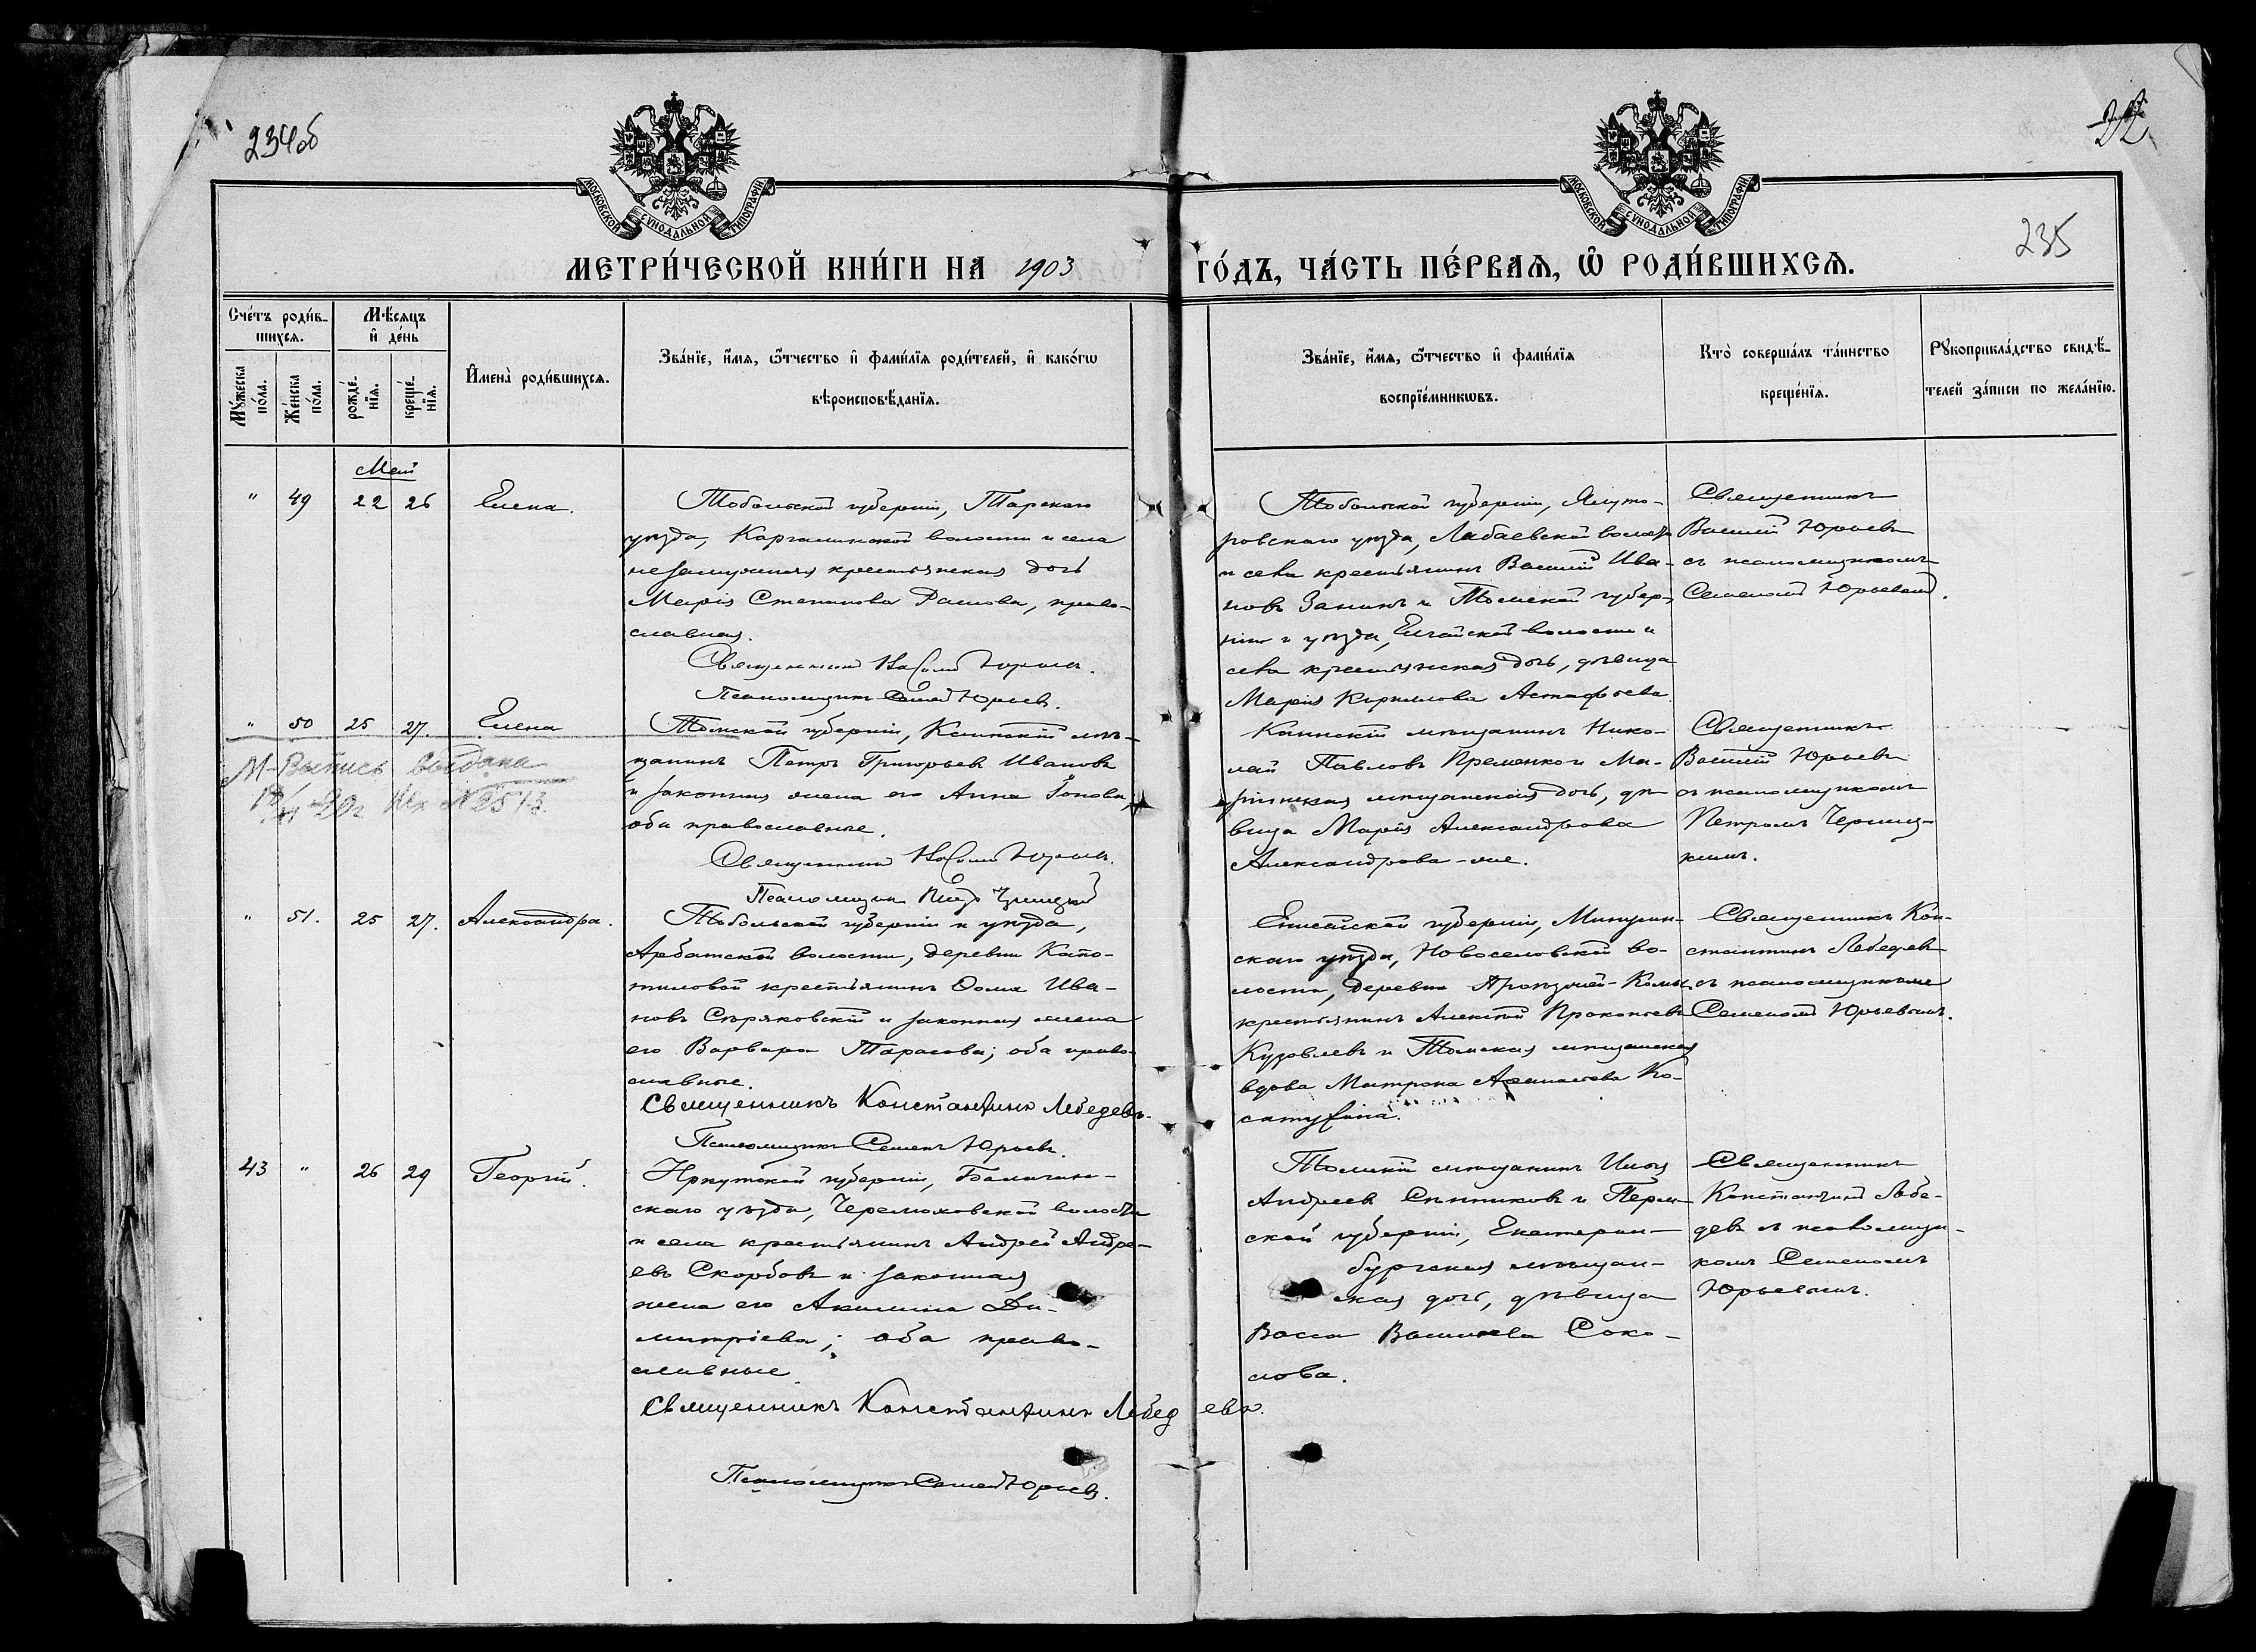 234об
22
235
МОСКОВСКОЙ СѴНОДАЛЬНОЙ ТИПОГРАФІИ
МОСКОВСКОЙ СѴНОДАЛЬНОЙ ТИПОГРАФІИ
МЕТРИ́ЧЕСКОЙ КНИ́ГИ НА 1903
ГО́ДЪ, ЧА́СТЬ ПЕ́РВАѦ, Ѡ РОДИ́ВШИХСѦ.
Сче́тъ роди́в-
шихсѧ.
Мꙋ́жеска по́ла.
Же́нска по́ла.
Мѣ́сѧцъ
и҆ де́нь
рожде́-
нїѧ.
креще́-
нїѧ.
И҆мена̀ роди́вшихсѧ.
Зва́нїе, и҆́мѧ, ѻ҆́тчество и҆ фами́лїѧ роди́телей, и҆ како́гѡ
вѣроисповѣ́данїѧ.
Зва́нїе, и҆́мѧ, ѻ҆́тчество и҆ фами́лїѧ
воспрїе́мникѡвъ.
Кто̀ соверша́лъ та́инство
креще́нїѧ.
Рꙋкоприкла́дство свидѣ́-
телей за́писи по жела́нїю.
Май
" 49 22 26 Елена.
Тобольской губерніи, Тарскаго
уѣзда, Каргалинской волости и села
незамужняя крестьянская дочь
Марія Степанова, право-
славная.
Священникъ Василій Юрьевъ.
Псаломщикъ Семенъ Юрьевъ.
Тобольской губерніи, Ялуто-
ровскаго уѣзда, Лабаевской волости
и села крестьянинъ Василій Ива-
новъ Занинъ и Томской губер-
ніи и уѣзда, Елгайской волости и
села крестьянская дочь, дѣвица
Марія Кириллова Астафьева.
Священникъ
Василій Юрьевъ
съ псаломщикомъ
Семеномъ Юрьевымъ.
" 50 25 27. Елена
М-Выпись выдана
20г Исх № 2513.
Томской губерніи, Каинскій мѣ-
щанинъ Петръ Григорьевъ Ивановъ
и законная жена его Анна Іонова,
оба православные.
Священникъ Василій Юрьевъ.
Псаломщикъ Петръ
Каинскій мѣщанинъ Нико-
лай Павловъ Еременко и Ма-
ріинская мѣщанская дочь, дѣ-
вица Марія Александрова
Александрова-же.
Священникъ
Василій Юрьевъ
съ псаломщикомъ
Петромъ
" 51. 25 27. Александра.
Тобольской губерніи и уѣзда,
Арбатской волости, деревни Капо-
тиловой крестьянинъ Ѳома Ива-
новъ Сѣряковскій и законная жена
его Варвара Тарасова; оба право-
славные.
Священникъ Константинъ Лебедевъ.
Псаломщикъ Семенъ Юрьевъ.
Енисейской губерніи, Минусин-
скаго уѣзда, Новоселовской во-
лости, деревни
крестьянинъ Алексѣй Прокопьевъ
Кузовлевъ и Томская мѣщанская
вдова Матрона Аѳанасьева Ко-
Священникъ Кон-
стантинъ Лебедевъ
съ псаломщикомъ
Семеномъ Юрьевымъ.
43 " 26 29 Георгій.
Иркутской губерніи, Балаган-
скаго уѣзда, Черемховской волости
и села крестьянинъ Андрей Андре-
евъ Скорбовъ и законная
жена его Акилина Ди-
митріева; оба право-
славные.
Священникъ Константинъ Лебедевъ.
Псаломщикъ Семенъ Юрьевъ.
Томскій мѣщанинъ Илья
Андреевъ Ситниковъ и Перм-
ской губерніи, Екатерин-
бургская мѣщан-
ская дочь, дѣвица
Васса Васильева Соко-
лова.
Священникъ
Константинъ Лебе-
девъ съ псаломщи-
комъ Семеномъ
Юрьевымъ.